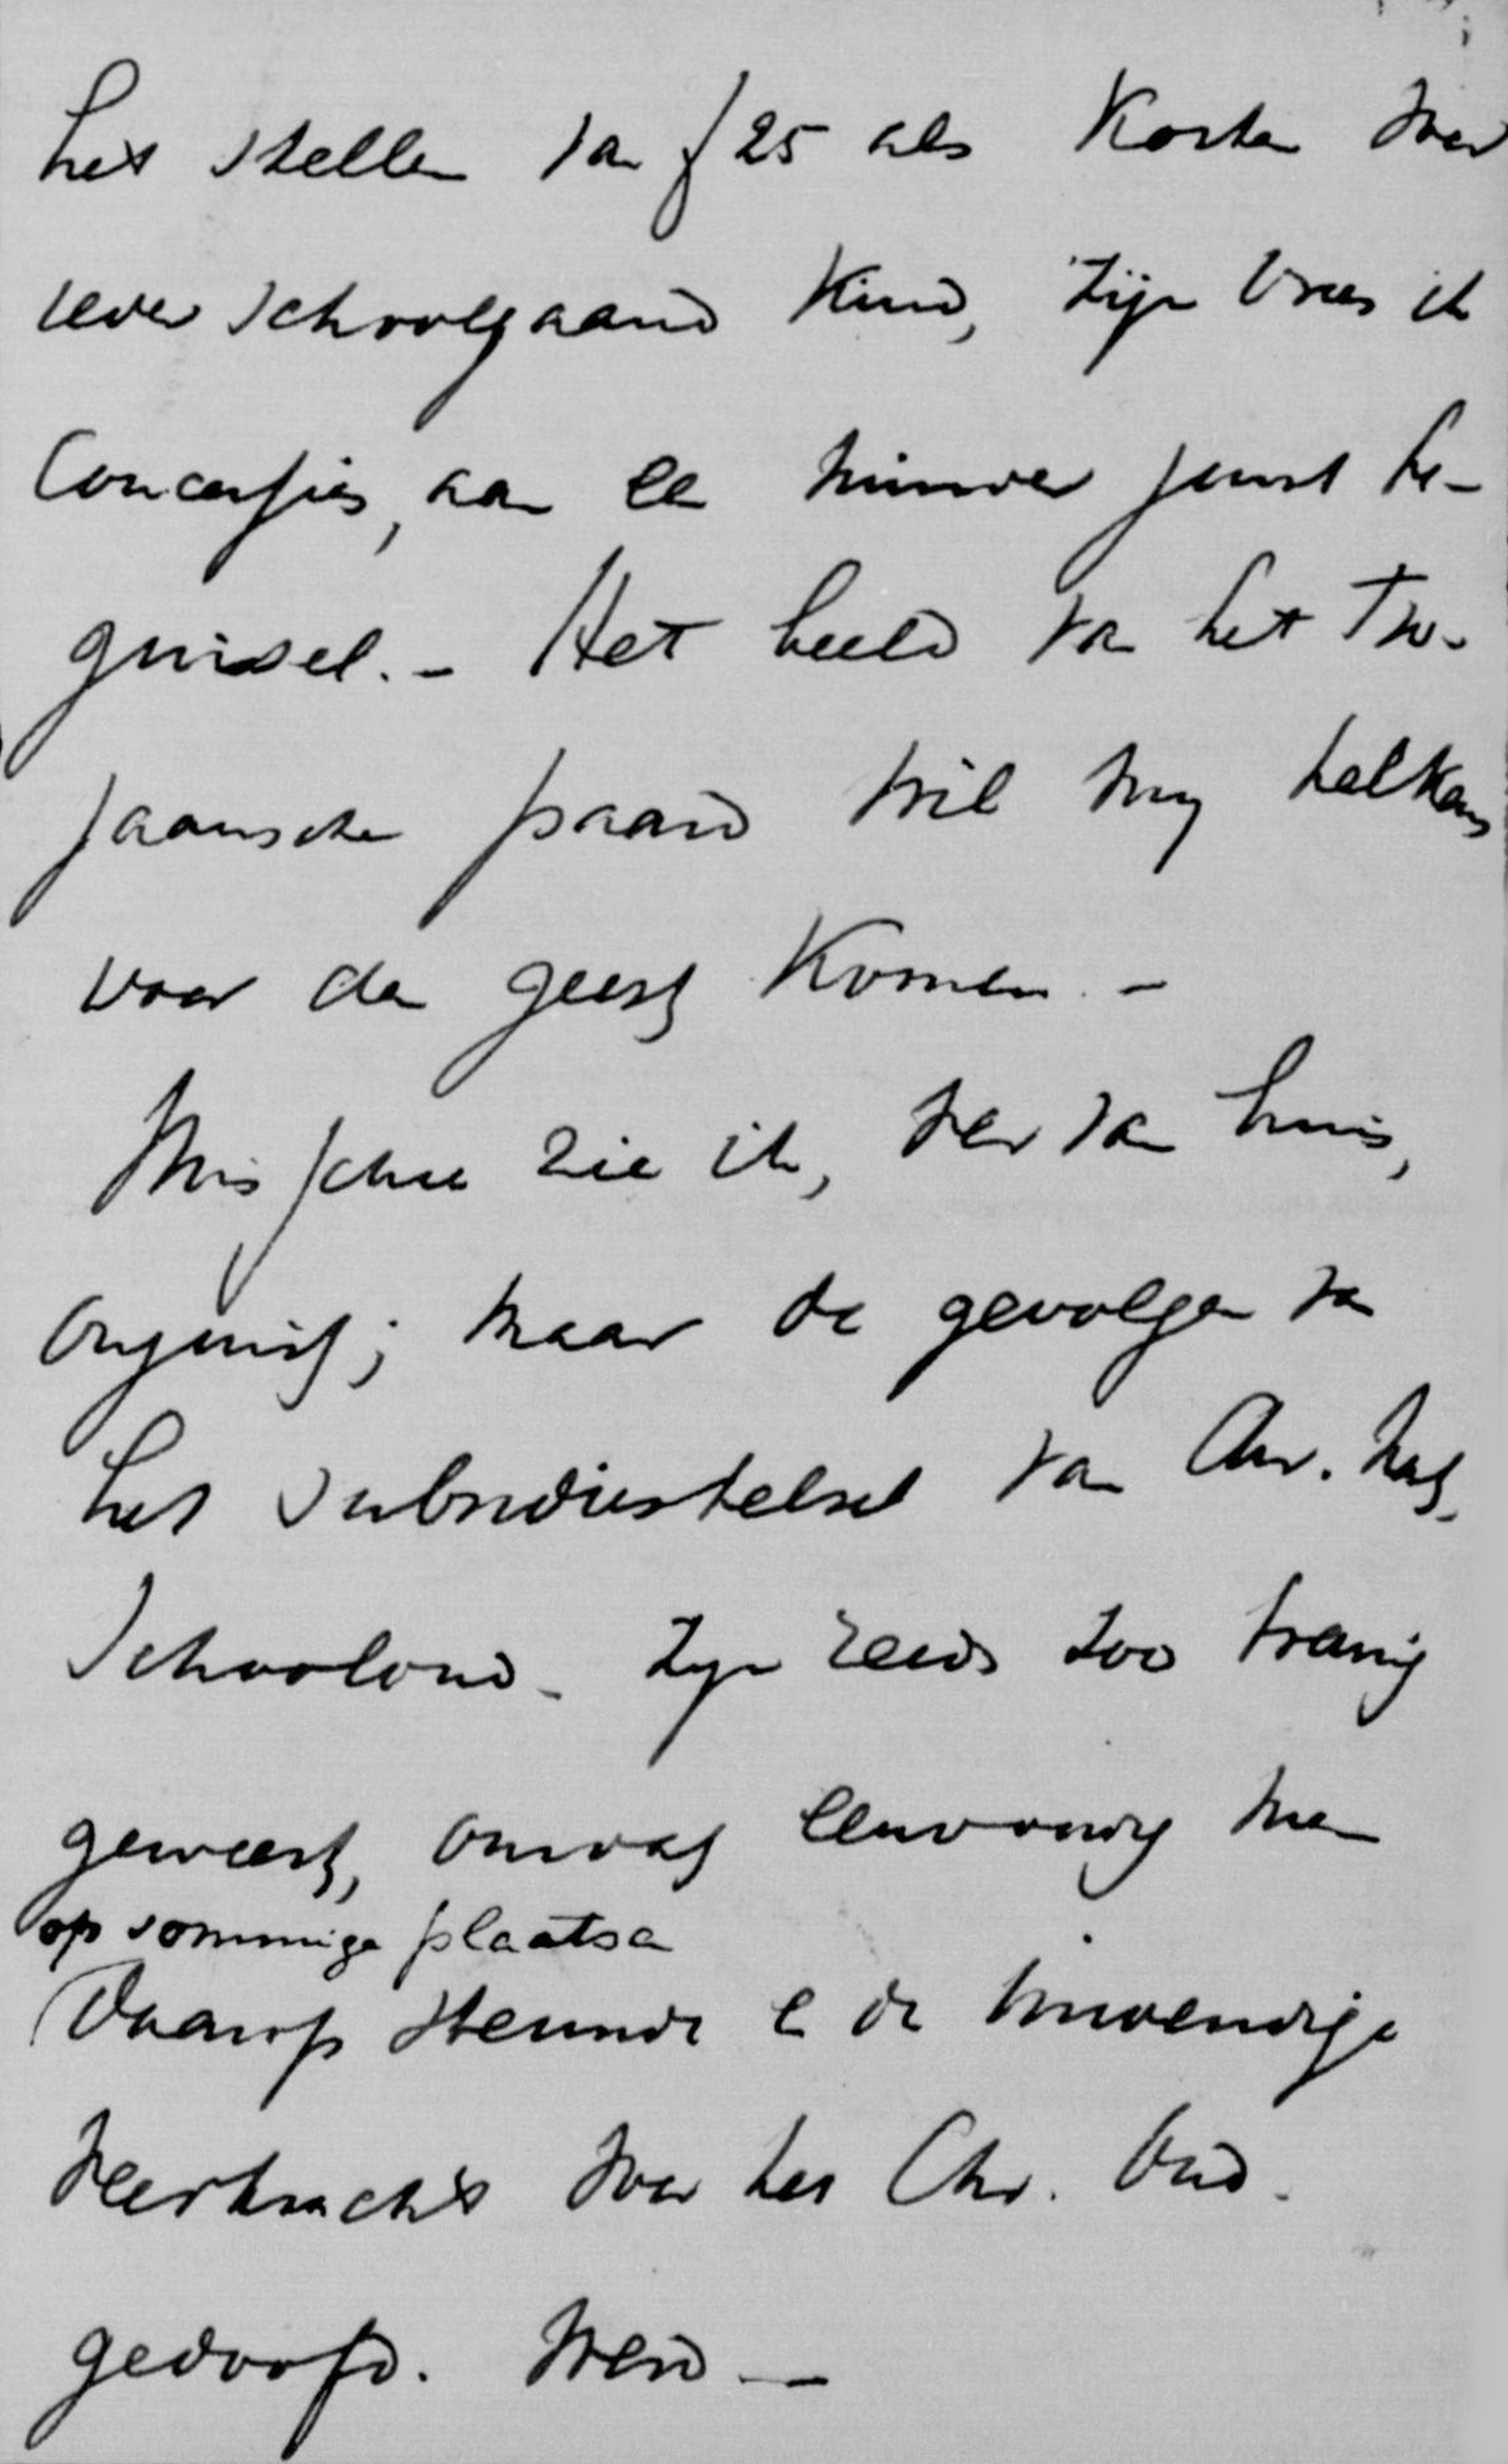 het stellen van ƒ25 als Kosten voor
ieder schoolgaand Kind, zijn vrees ik
Concessies, aan een minder juist be-
ginsel. - Het beeld van het Tro-
jaansche paard wil my telkens
voor den geest Komen. -
Misschien zie ik, ver van huis,
onjuist; maar de gevolgen van
het subsidiestelsel van Chr. Nat.
Schoolond. zyn reeds zoo treurig
geweest, omdat eenvoudig men
op sommige plaatsen
daarop steunde en de inwendige
veerkracht voor het Chr. Ond.
gedoofd. werd —